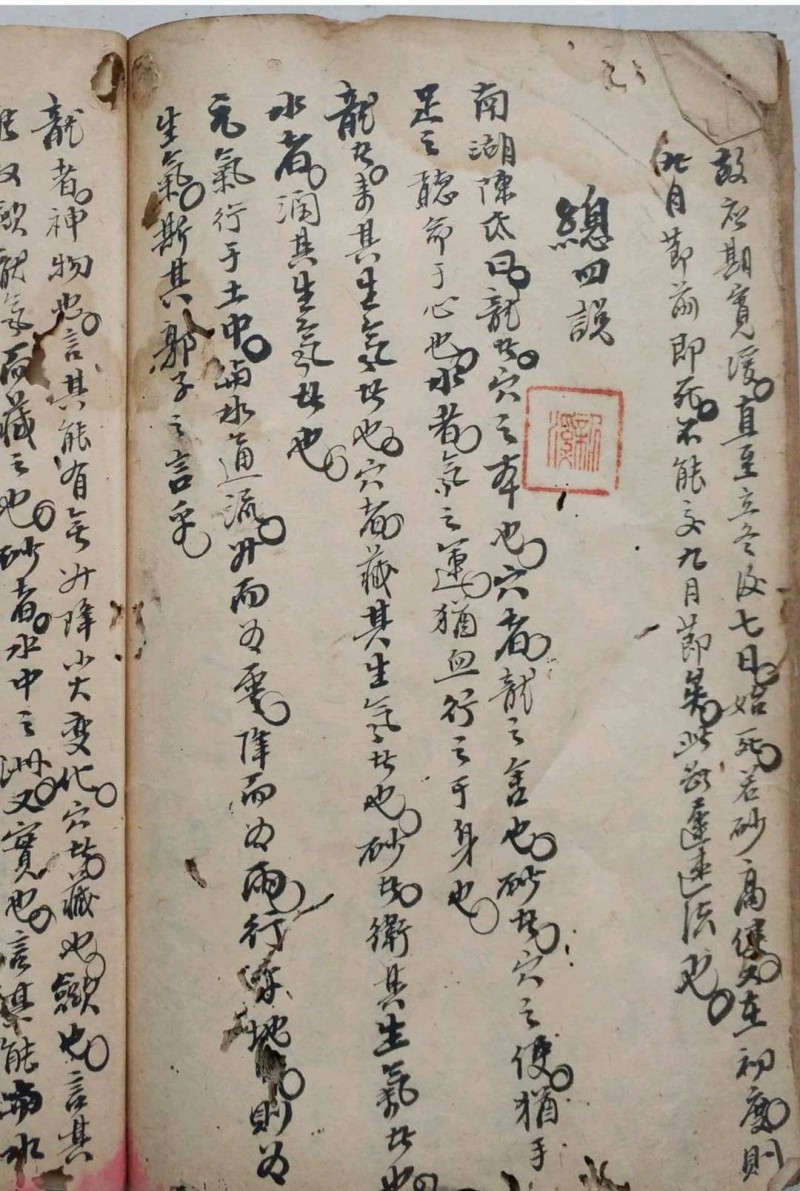 故应期寬緩直至立冬後七日始死若砂高使又在初度則
此月節前即死不能交九月節矣此訟遲速法也
總四誤
南湖陳氏曰龍者穴之本也穴者龍之舍也砂者穴之使猶手
足之聽命于心也水者氣之運猶血行之于身也
龍者來其生氣者也穴者藏其生氣者也砂者衛其生氣者也
水者㴠其生氣者也
元氣行于土中水通流升而为雲降而为雨行地則为
生氣斯其郭子之言乎
龍者神物也言其能有无升降小大变化穴者藏也歛也言其
能收歛龍氣而藏之也砂者水中之洲又實也言其能水